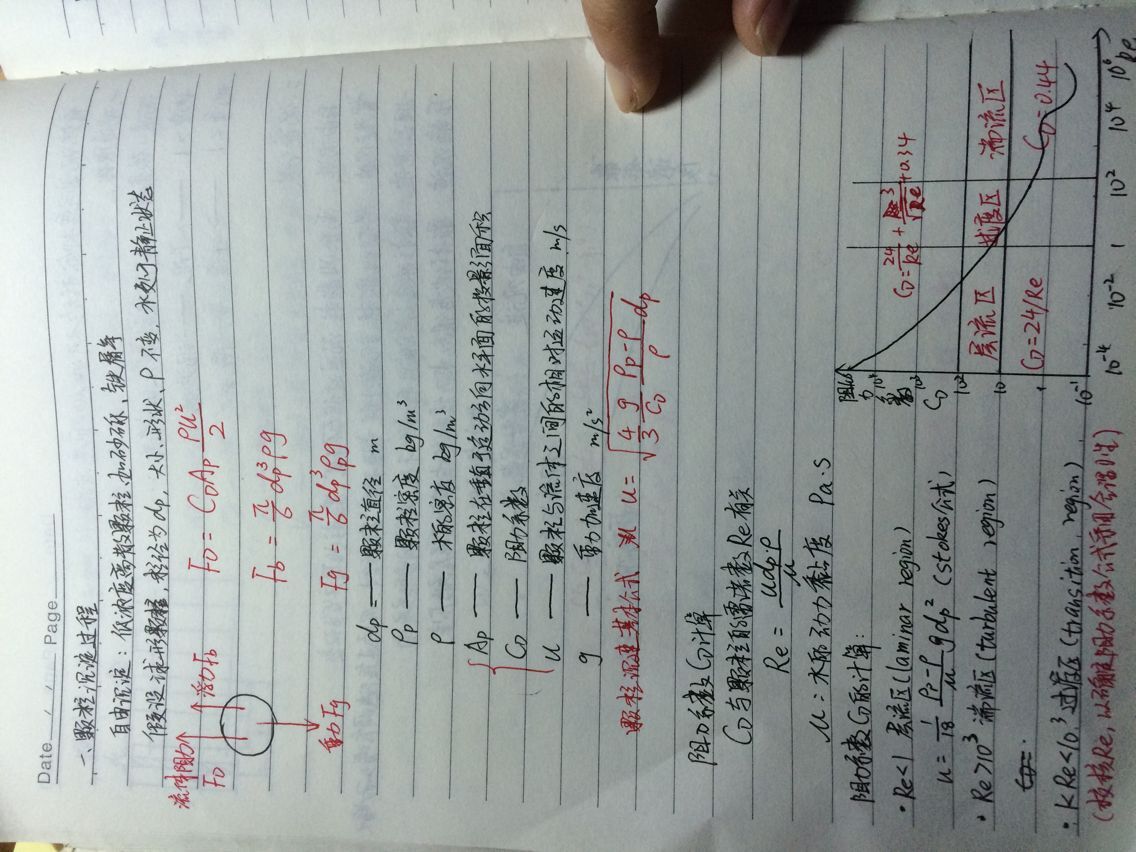 Date / / Page
一、颗粒沉淀过程
自由沉淀：低浓度离散颗粒,如砂砾、铁屑等
假设球形颗粒,粒径为dp,大小、形状、ρ不变,水处于静止状态
流体阻力 FD
浮力Fb
重力Fg
FD = CD Ap ρu²/2
Fb = π/6 dp³ρg
Fg = π/6 dp³ρpg
dp — 颗粒直径 m
ρp — 颗粒密度 kg/m³
ρ — 水的密度 kg/m³
Ap — 颗粒在垂直于运动方向水平面的投影面积
CD — 阻力系数
u — 颗粒与流体之间的相对运动速度 m/s
g — 重力加速度 m/s²
颗粒沉速基本公式 u = √(4/3 g/CD (ρp-ρ)/ρ dp)
阻力系数CD计算
CD与颗粒的雷诺数Re有关
Re = udp·ρ/μ
μ: 水的动力黏度 Pa·s
阻力系数CD的计算:
· Re<1 层流区(laminar region)
u = 1/18 (ρp-ρ)/μ gdp² (stokes公式)
· Re>10³ 湍流区(turbulent region)
· 1<Re<10³ 过渡区(transition region)
(校核Re,以确定阻力系数公式利用合理性)
阻力系数 CD
10⁴
10³
10²
10
1
10⁻¹
CD = 24/Re + 3/√Re + 0.34
层流区 过度区 湍流区
CD = 24/Re
CD = 0.44
10⁻⁴ 10⁻² 1 10² 10⁴ 10⁶ Re